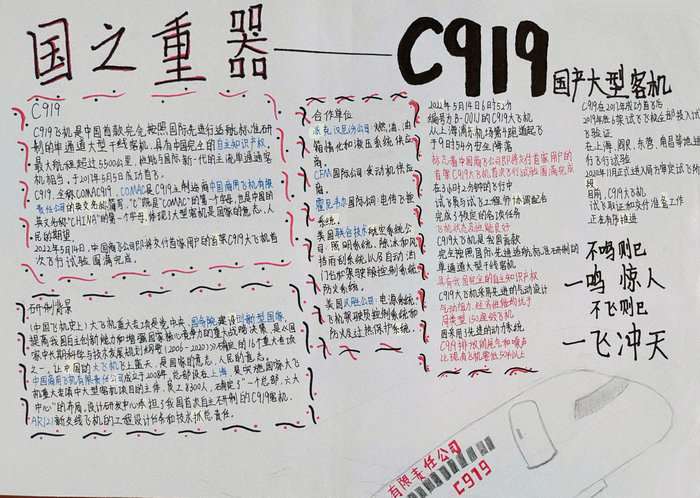 国之重器 —— C919
国产大型客机
C919
C919飞机是中国首款完全按照国际先进行适航标准研
制的单通道大型干线客机，具有中国完全的自主知识产权。
最大航程超过5500公里，性能与国际新一代的主流单通道客
机相当，于2017年5月5日成功首飞。
C919，全称COMAC919，COMAC是C919主制造商中国商用飞机有限
责任公司的英文名称简写，“C”既是“COMAC”的第一个字母，也是中国的
英文名称“CHINA”的第一个字母，体现了大型客机是国家的意志，人
民的期望。
2022年5月14日，中国商飞公司即将交付首家用户的首架C919大飞机首
次飞行试验圆满完成。
研制背景
《中国飞机史上》大飞机重大专项是党中央、国务院建设创新型国家，
提高我国自主创新能力和增强国家核心竞争力的重大战略决策，是《国
家中长期科学与技术发展规划纲要（2006-2020）》确定的16个重大专项
之一。让中国的大飞机飞上蓝天，是国家的意志，人民的意志。
中国商用飞机有限责任公司成立于2008年，总部设在上海
机重大专项中大型客机项目的主体，员工8300人，
中心”的布局，设计研发中心承担了我国首次自主研制的C919客机，
ARJ21新支线飞机的工程设计任务和技术抓总责任。
合作单位
派克汉尼汾公司：燃油，油
箱惰化和液压系统供应
商。
CFM国际公司：发动机供应
商。
霍尼韦尔国际公司：电传飞控
系统。
美国联合技术航空系统公
司：照明系统，除冰和风
挡雨刮系统，以及自动油
门台和驾驶舱控制系统
防火系统。
美国穆格公司：电源系统，
飞机驾驶员控制系统和
防火及过热保护系统。
2022年5月14日6时52分
编号为B-001J的C919大飞机
从上海浦东机场第4跑道起飞于
9时54分安全降落
标志着中国商飞公司即将交付首家用户的
首架C919大飞机首次飞行试验圆满完成
在3小时2分钟的飞行中
试飞员与试飞工程师协调配合
完成了预定的各项任务
飞机状态及性能良好
C919大飞机是我国首款
完全按照国际先进适航标准研制的
单通道大型干线客机
具有我国完全的自主知识产权
C919大飞机采用先进的气动设计
同类型150座级飞机
因采用了先进的动力系统
C919排放的尾气和噪声
比现有飞机客舱50%以上
C919在2017年成功首飞后
2019年底6架试飞飞机全部投入
飞验证
在上海、阎良、东营、南昌等地进
行飞行试验
2020年11月正式进入局方审定试飞
目前，C919大飞机
试飞取证和交付准备工作
正在有序推进
不鸣则已
一鸣惊人
不飞则已
一飞冲天
有限责任公司
C919